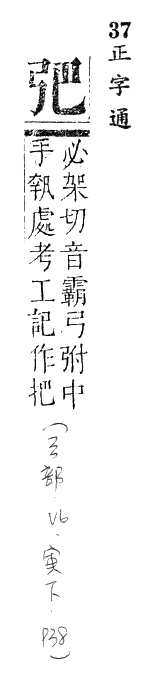 37正字通
弝
必架切音霸弓弣中
手執處考工記作把
(弓部.V6.寅下.P38)